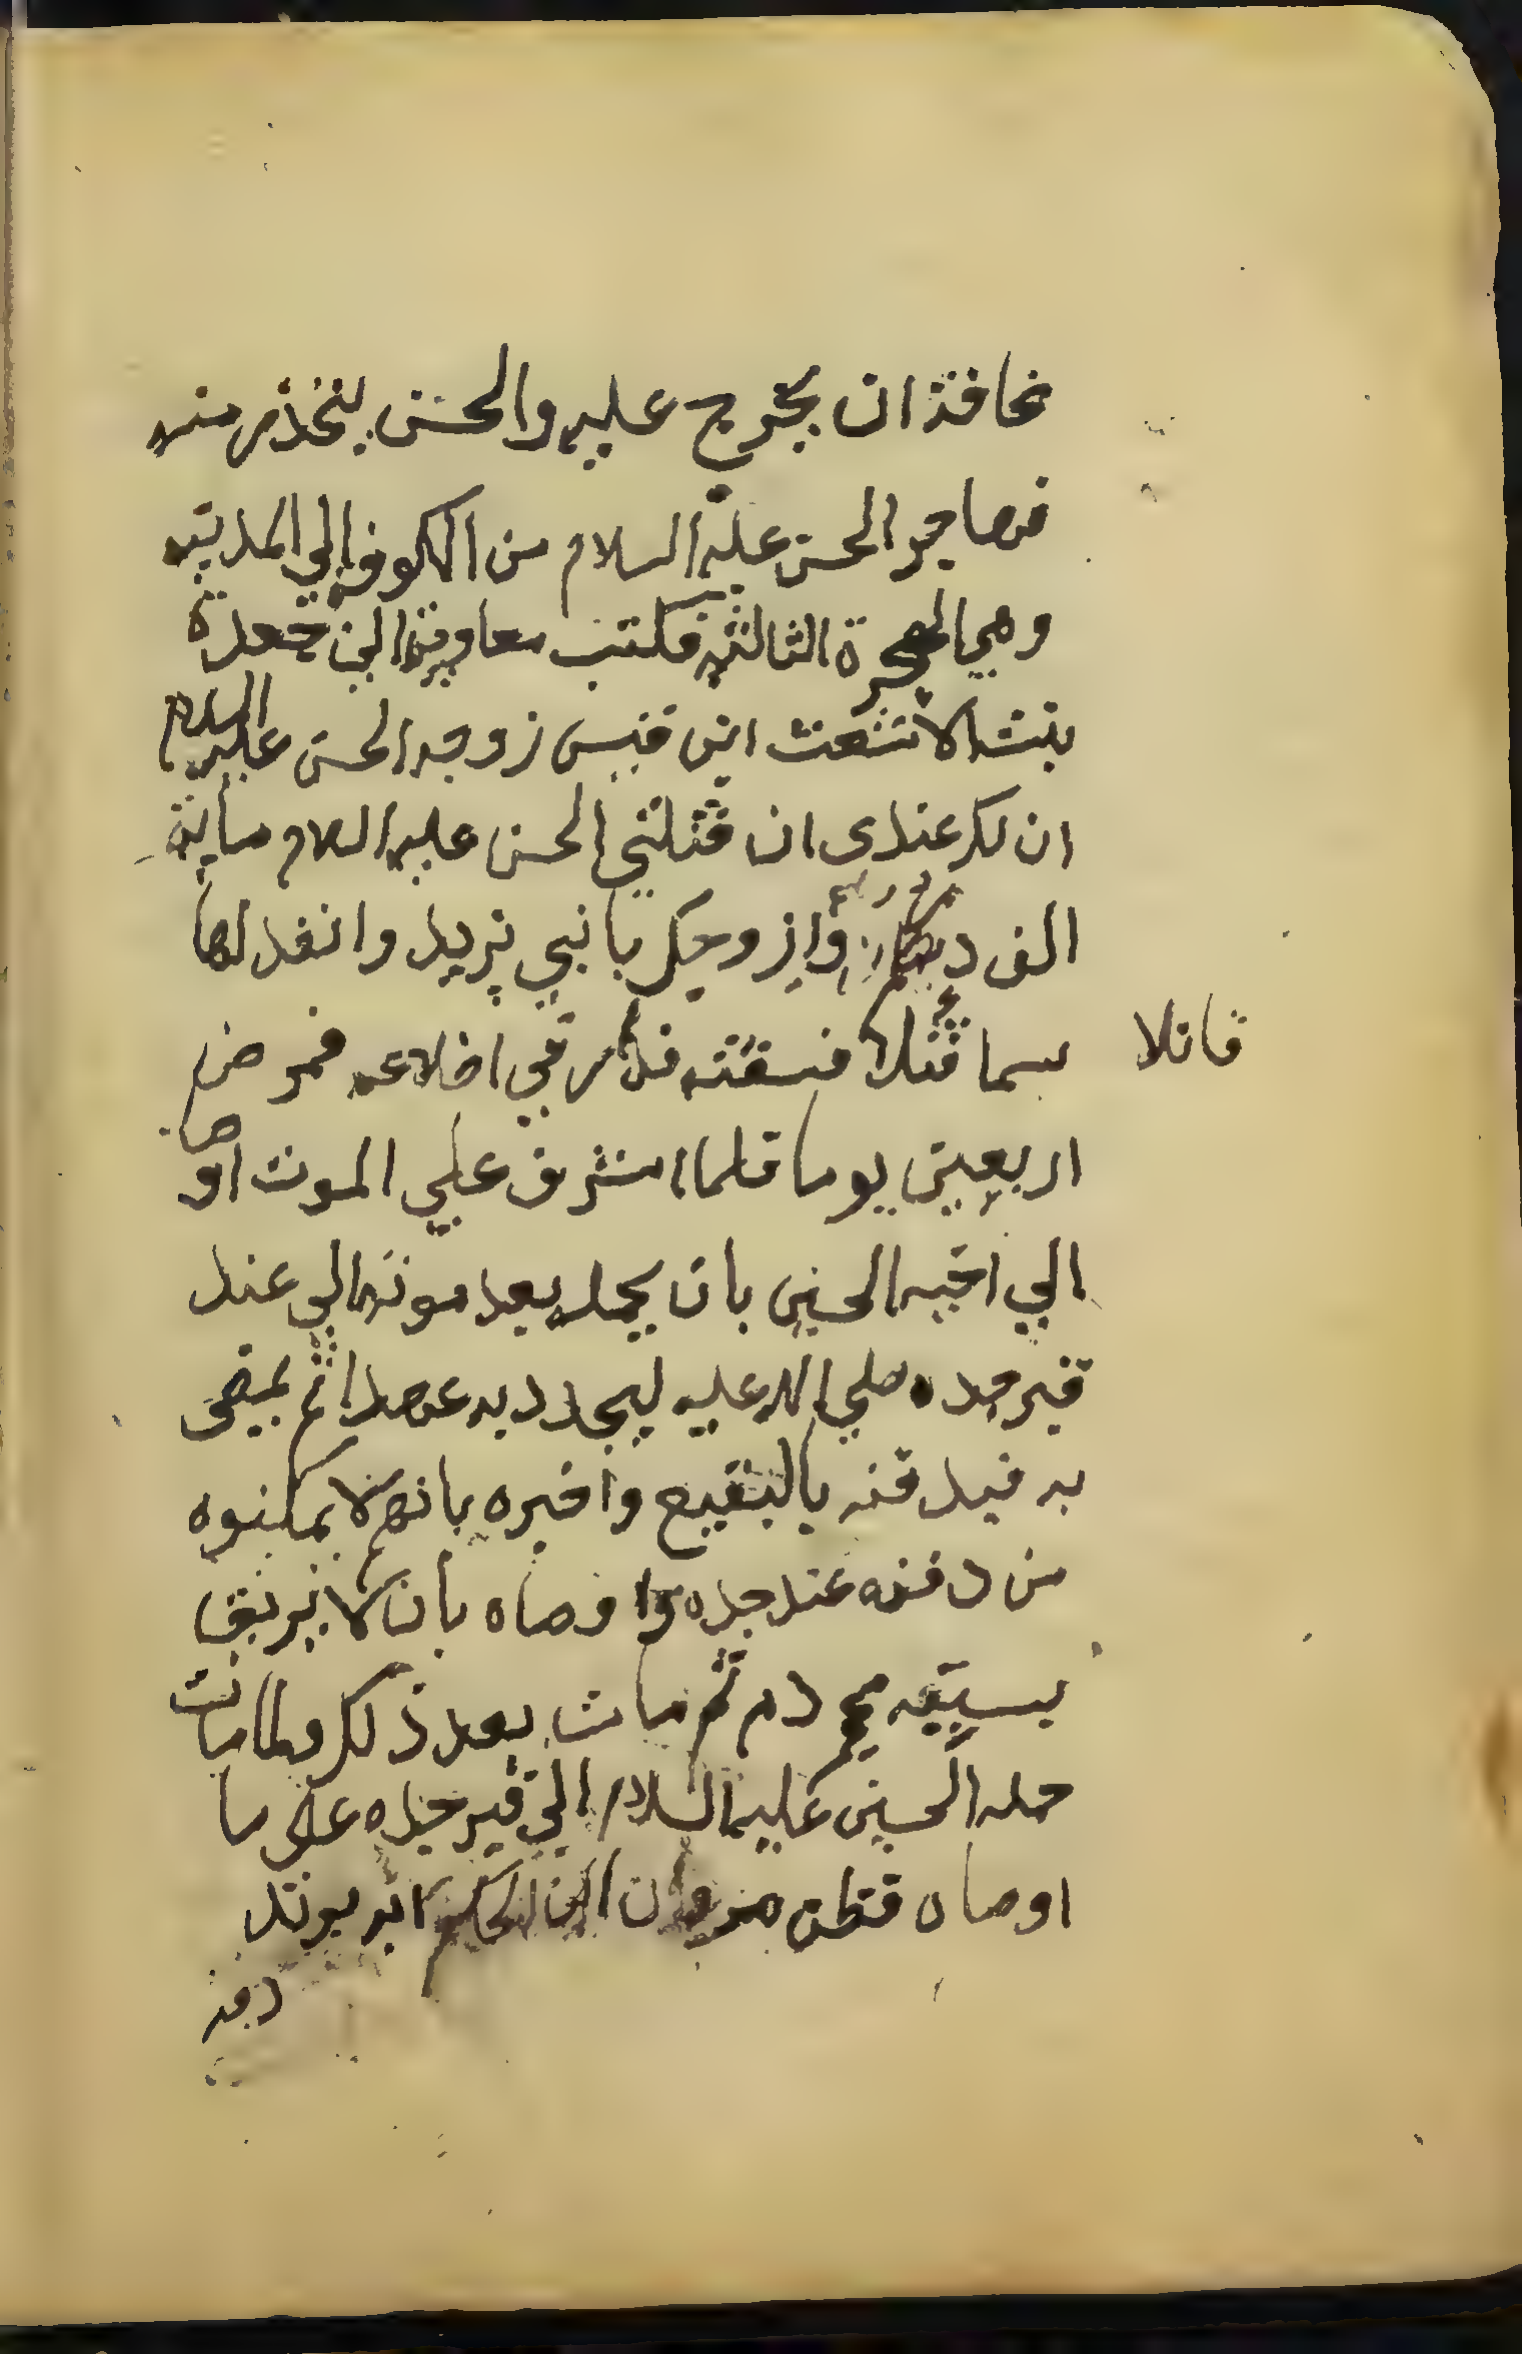 مخافة ان يخرج عليه والحسن يتحذر منه
فهاجر الحسن عليه السلام من الكوفه الي المدينه
وهي الهجرة الثالثه فكتب معاوية الي جعدة
بنت الاشعث ابن قيس زوجه الحسن عليه السلام
ان لكِ عندى ان قتلتي الحسن عليه السلام مايه
الف درهم وازوجك بابني يزيد وانفد لها
سما قتلا فسقته في اضلاعه فمرض
قاتلا
اربعين يوما فلما اشرف علي الموت اوصا
الي اخيه الحسين بان يحمله بعد موته الي عند
قبر جده صلي الله عليه ليجدد به عهدا ثم يمضى
به فيدفنه بالبقيع واخبره بانهم لا يمكنوه
من دفنه عند جده واوصاه بان لا يريق
بسببه محجر دم ثم مات بعد ذلك ولما مات
حمله الحسين عليه السلام الي قبر جده على ما
اوصاه فظن مروان ابن الحكم انه يريد
دفنه